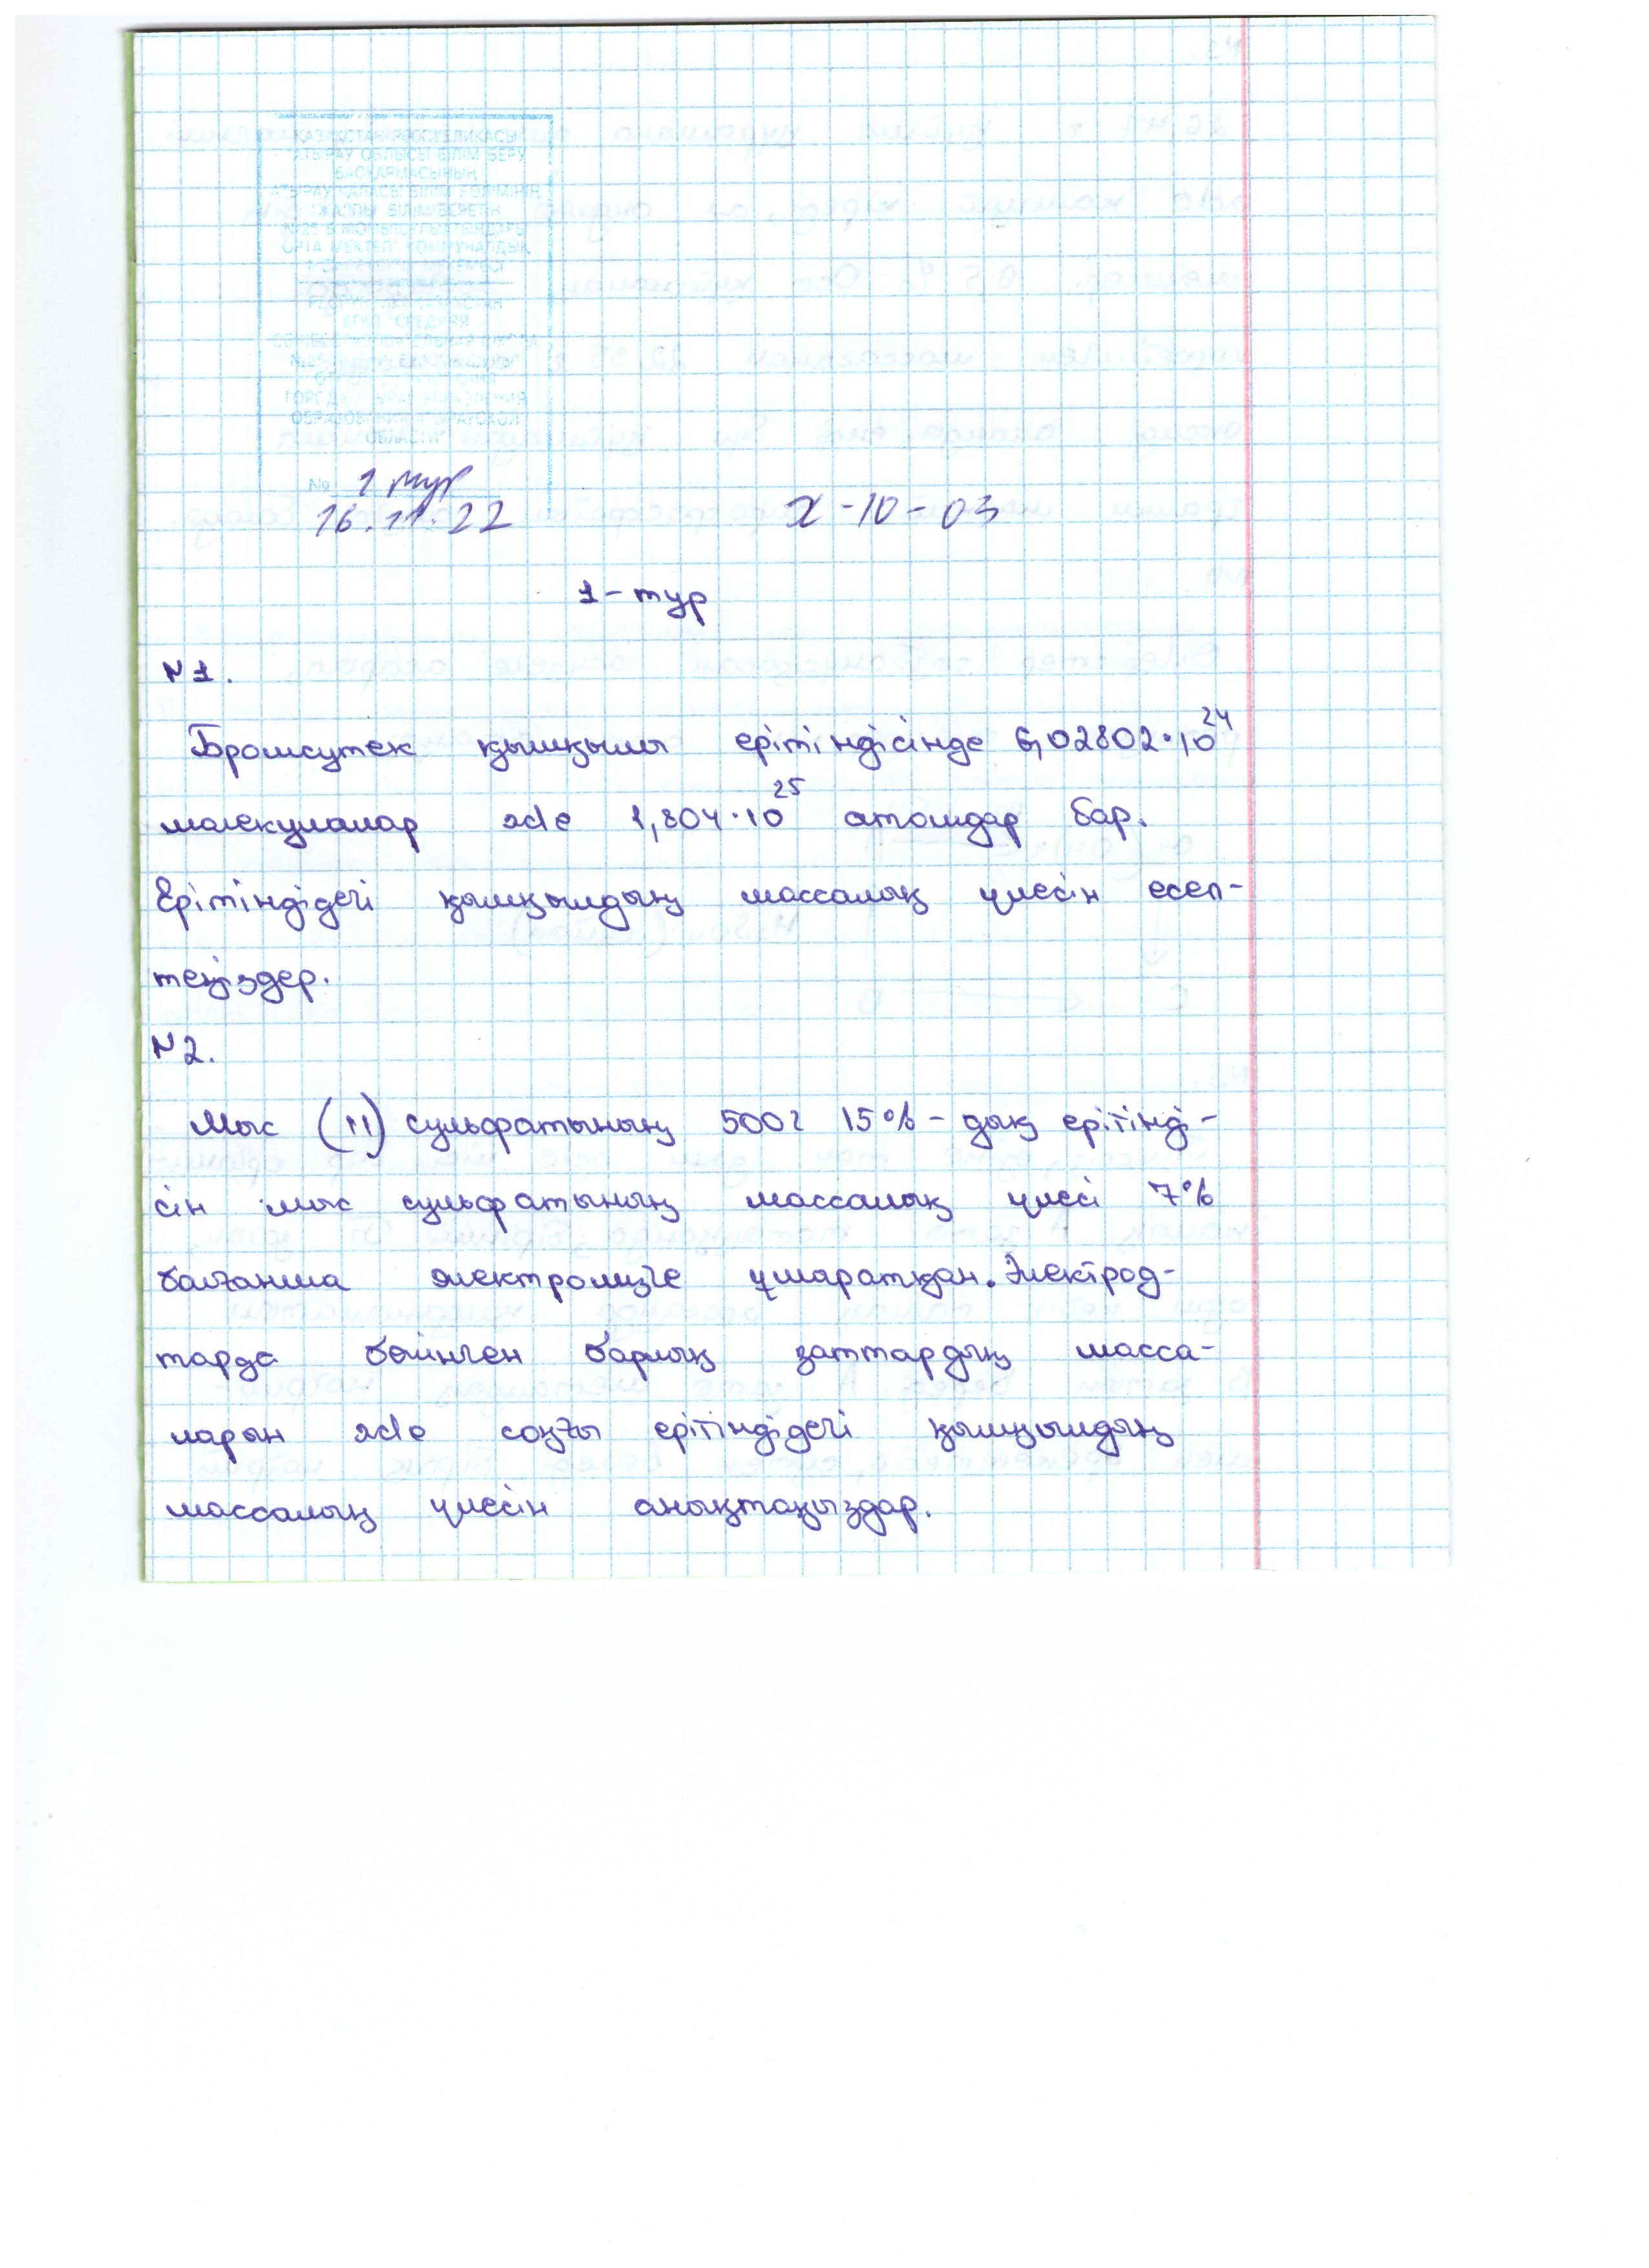 ҚАЗАҚСТАН РЕСПУБЛИКАСЫ
АТЫРАУ ОБЛЫСЫ БІЛІМ БЕРУ
БАСҚАРМАСЫНЫҢ
АТЫРАУ ҚАЛАСЫ БІЛІМ БӨЛІМІНІҢ
ЖАЛПЫ БІЛІМ БЕРЕТІН
ОРТА МЕКТЕП" КОММУНАЛДЫҚ
ОБЛАСТИ"
№ 1 тур
16.11.22
X-10-03
1-тур
N1.
Бромсутек қышқылы ерітіндісінде 6,02802·10²⁴
молекулалар және 1,804·10²⁵ атомдар бар.
Ерітіндідегі қышқылдың массалық үлесін есеп-
теңіздер.
N2.
Мыс (II) сульфатының 500г 15%-дық ерітінді-
сін мыс сульфатының массалық үлесі 7%
болғанша электролизге ұшыратқан. Электрод-
тарда бөлінген барлық заттардың масса-
ларын және соңғы ерітіндідегі қышқылдың
массалық үлесін анықтаңыздар.